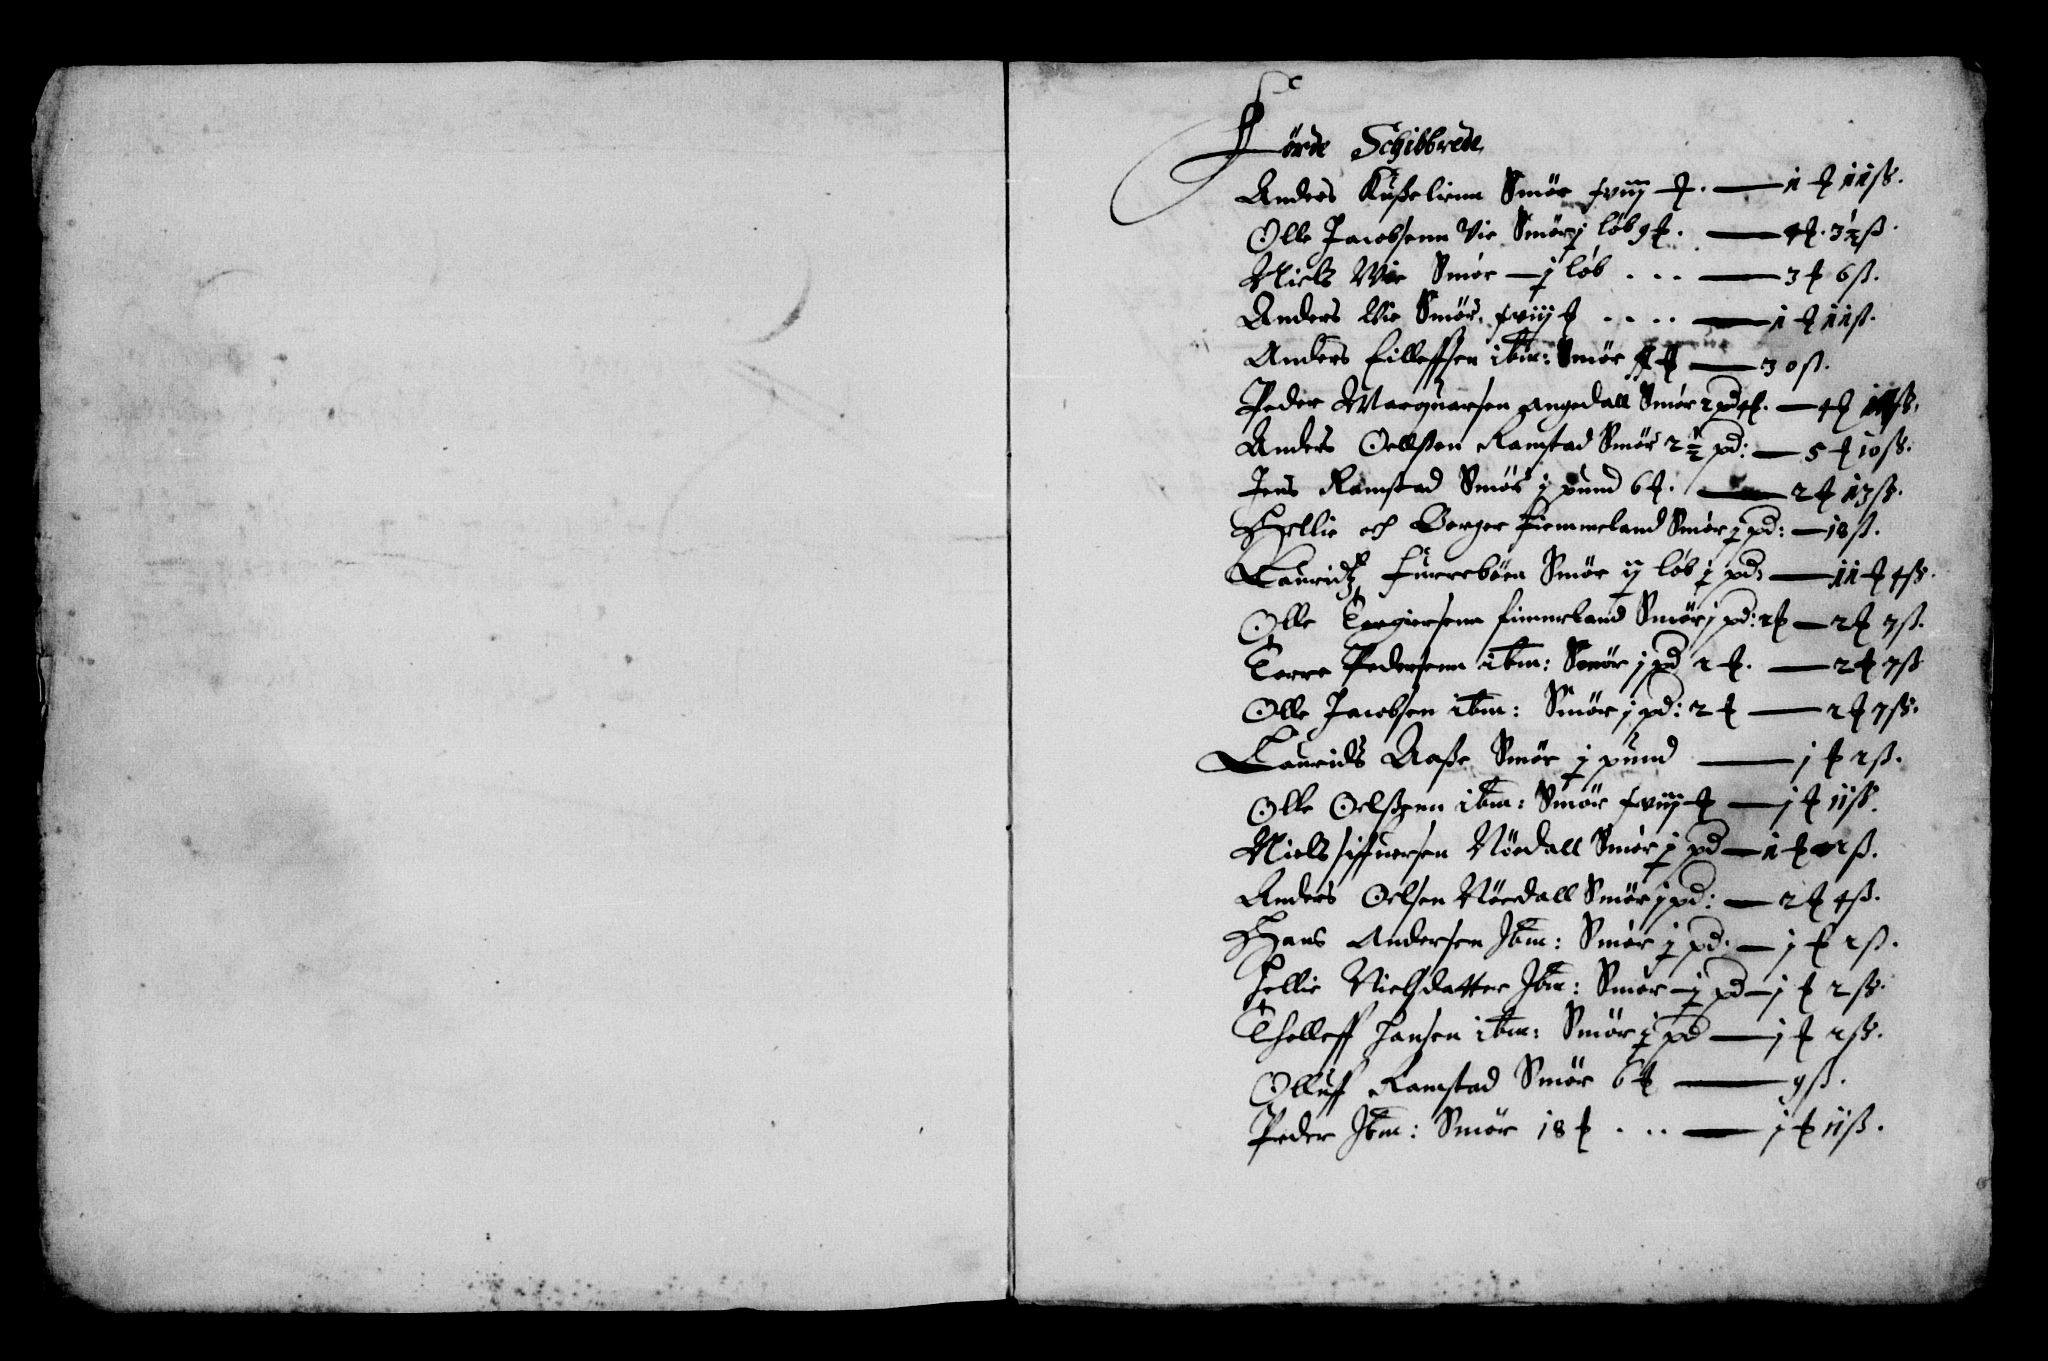 Förde Schibbrede
Anders Kußelienn Smör xviij ℔. — 1 ℔ 11 ß.
Olle Jacobsenn Vie Smör j løb 9 ℔. — 4 ℔. 3½ ß.
Niels Vie Smör — j løb . . . — 3 ℔ 6 ß.
Anders Vie Smör. xviij ℔ . . . . — 1 ℔ 11 ß.
Anders Eilleffsen ibm: Smör ℔ — 30 ß.
Peder Marquarsen angedall Smör 2 pd 4 ℔. — 4 ℔ ß.
Anders Oellsen Ramstad Smör 2½ pd: — 5 ℔ 10 ß.
Jens Ramstad Smör j pund 6 ℔. — 2 ℔ 13 ß.
Hellie och Borger fiemmeland Smör j pd: — 18 ß.
Lauridtz Furreböen Smör ij løb j pd: — 11 ℔ 4 ß.
Olle Torgiersenn fimmeland Smör j pd: 2 ℔ — 2 ℔ 7 ß.
Torre Pedersenn ibm: Smör j pd 2 ℔. — 2 ℔ 7 ß
Olle Jacobsen ibm: Smör j pd: 2 ℔ — 2 ℔ 7 ß.
Laurids Aaße Smör j pund — j ℔ 2 ß.
Olle Oelßenn ibm: Smör xviij ℔ — j ℔ 11 ß.
Niels siffuersen Nöedall Smör j pd — 1 ℔ 2 ß.
Anders Oelsen Nöedall Smör j pd: — 2 ℔ 4 ß.
Hans Andersen Ibm: Smör j pd. — j ℔ 2 ß.
Hellie Nielsdatter Ibm: Smör — j pd — j ℔ 2 ß.
Tholleff Hansen ibm: Smör j pd — j ℔ 2 ß.
Olluff Ramstad Smör 6 ℔ — 9 ß.
Peder Ibm: Smör 18 ℔ . . . — j ℔ 11 ß.